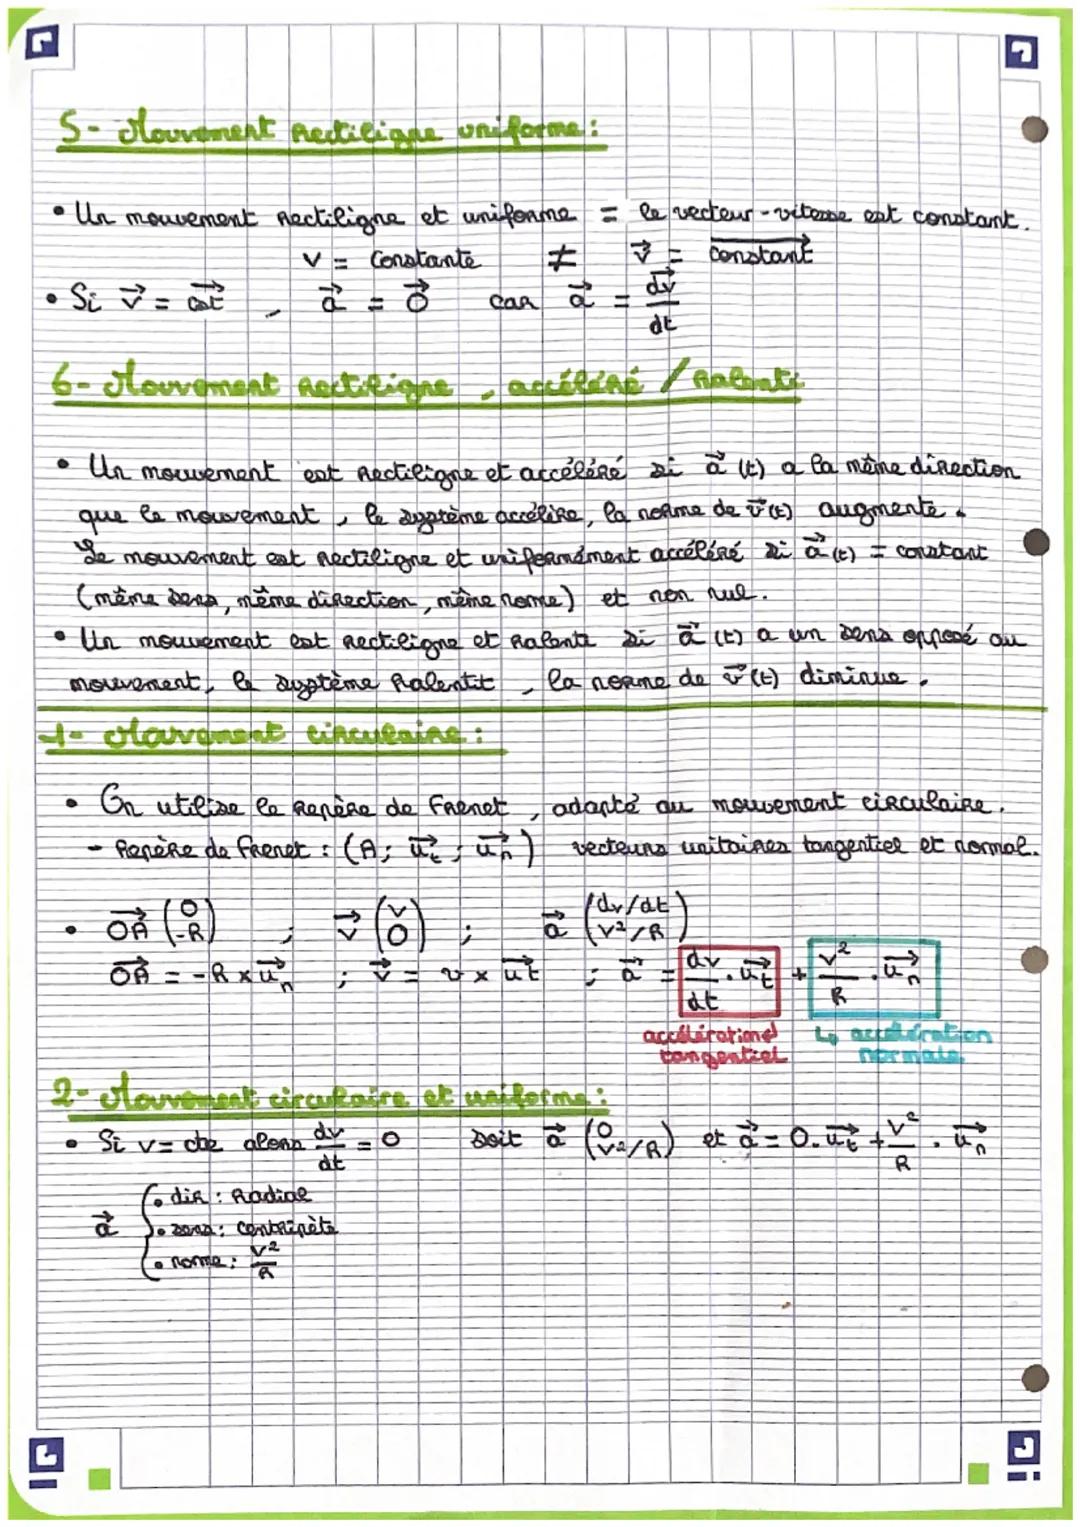 5- Mouvement rectiligne uniforme :
• Un mouvement rectiligne et uniforme = le vecteur-vitesse est constant.
v = constante ≠ v⃗ = constant⃗
• Si v⃗ = cst⃗ , a⃗ = 0⃗ car a⃗ = dv⃗/dt
6- Mouvement rectiligne , accéléré / ralenti
• Un mouvement est rectiligne et accéléré si a⃗ (t) a la même direction
que le mouvement , le système accélire, la norme de v⃗(t) augmente.
Le mouvement est rectiligne et uniformément accéléré si a⃗(t) = constant
(même sens, même direction, même nome) et non nul.
• Un mouvement est rectiligne et ralenti si a⃗ (t) a un sens opposé au
mouvement, le système ralentit , la norme de v⃗(t) diminue.
1- Mouvement circulaire :
• On utilise le repère de Frenet , adapté au mouvement circulaire.
- Repère de Frenet : (A; u⃗t ; u⃗n) vecteurs unitaires tangentiel et normal.
• OA⃗ (0 / -R) ; v⃗ (v / 0) ; a⃗ (dv/dt / v²/R)
OA⃗ = -R × u⃗n ; v⃗ = v × u⃗t ; a⃗ = dv/dt . u⃗t + v²/R . u⃗n
accélérationel ↳ accélération
tangentiel normale
2- Mouvement circulaire et uniforme :
• Si v = cte alors dv/dt = 0 soit a⃗ (0 / v²/R) et a⃗ = 0. u⃗t + v²/R . u⃗n
• dir : Radial
a⃗ { • sens : centripète
• nome : v²/R